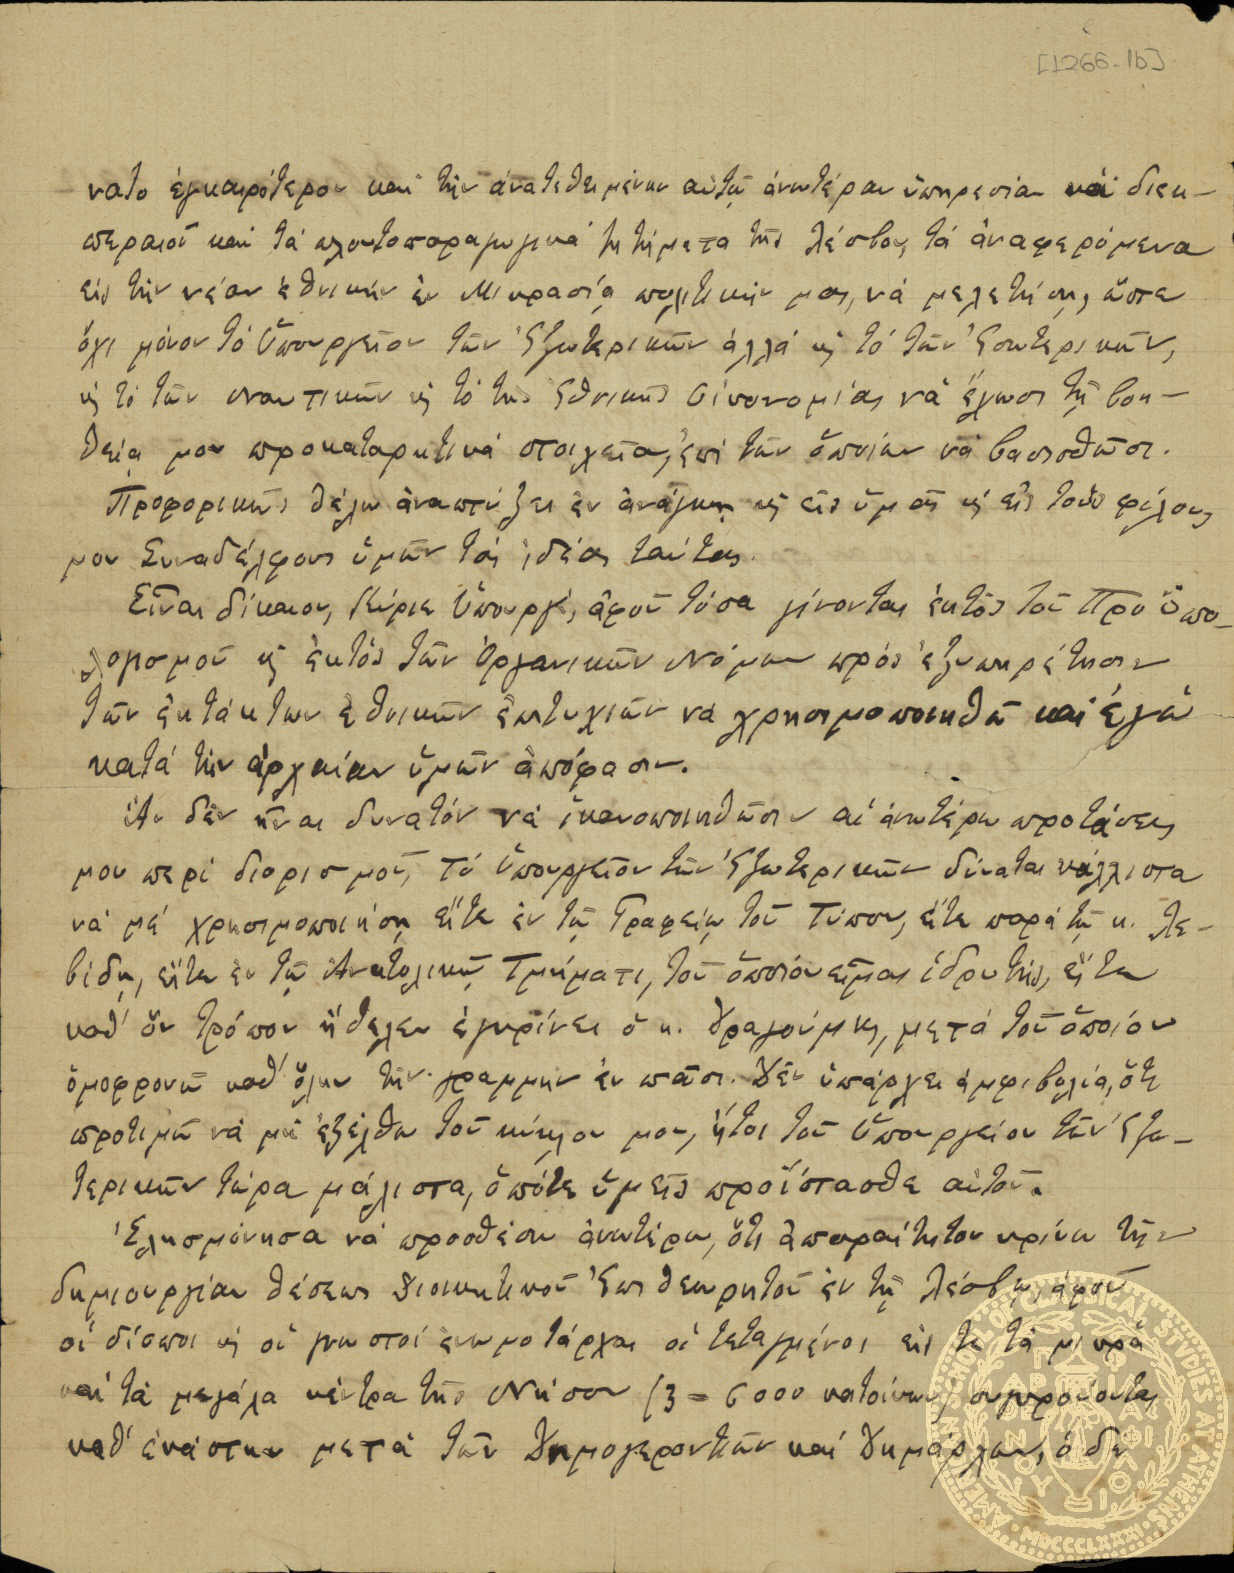 [1266-1b]
νατο ἐγκαιρότερον καὶ τὴν ἀνατεθειμένην αὐτῷ ἀνωτέραν ὑπηρεσίαν νὰ διεκ-
περαιοῖ καὶ τὰ πλουτοπαραγωγικὰ ζητήματα τῆς Λέσβου, τὰ ἀναφερόμενα
εἰς τὴν νέαν ἐθνικὴν ἐν Μικρασίᾳ πολιτικήν μας, νὰ μελετήσῃ, ὥστε
ὄχι μόνον τὸ Ὑπουργεῖον τῶν Ἐξωτερικῶν ἀλλὰ κ̀ τὸ τῶν Ἐσωτερικῶν,
κ̀ τὸ τῶν Ναυτικῶν κ̀ τὸ τῆς Ἐθνικῆς Οἰκονομίας νὰ ἔχωσι τῇ βοη-
θείᾳ μου προκαταρκτικὰ στοιχεῖα, ἐπὶ τῶν ὁποίων νὰ βασισθῶσι.
Προφορικῶς θέλω ἀναπτύξει ἐν ἀνάγκῃ κ̀ εἰς ὑμᾶς κ̀ εἰς τοὺς φίλους
μου Συναδέλφους ὑμῶν τὰς ἰδέας ταύτας.
Εἶναι δίκαιον, Κύριε Ὑπουργέ, ἀφοῦ τόσα γίνονται ἐκτὸς τοῦ Προϋπο-
λογισμοῦ κ̀ ἐκτὸς τῶν Ὀργανικῶν Νόμων πρὸς ἐξυπηρέτησιν
τῶν ἐκτάκτων ἐθνικῶν ἐπιτυχιῶν νὰ χρησιμοποιηθῶ καὶ ἐγὼ
κατὰ τὴν ἀρχικὴν ὑμῶν ἀπόφασιν.
Ἂν δὲν εἶναι δυνατὸν νὰ ἱκανοποιηθῶσιν αἱ ἀνωτέρω προτάσεις
μου περὶ διορισμοῦ, τὸ Ὑπουργεῖον τῶν Ἐξωτερικῶν δύναται κάλλιστα
νὰ μὲ χρησιμοποιήσῃ εἴτε ἐν τῷ Γραφείῳ τοῦ Τύπου, εἴτε παρὰ τῷ κ. Λε-
βίδῃ, εἴτε ἐν τῷ Ἀνατολικῷ Τμήματι, τοῦ ὁποίου εἶμαι ἱδρυτής, εἴτε
καθ' ὃν τρόπον ἤθελεν ἐγκρίνει ὁ κ. Δραγούμης, μετὰ τοῦ ὁποίου
ὁμοφρονῶ καθ' ὅλην τὴν γραμμὴν ἐν πᾶσι. Δὲν ὑπάρχει ἀμφιβολία, ὅτι
προτιμῶ νὰ μὴ ἐξέλθω τοῦ κύκλου μου, ἤτοι τοῦ Ὑπουργείου τῶν Ἐξω-
τερικῶν τώρα μάλιστα, ὁπότε ὑμεῖς προΐστασθε αὐτοῦ.
Ἐλησμόνησα νὰ προσθέσω ἀνωτέρω, ὅτι ἀπαραίτητον κρίνω τὴν
δημιουργίαν θέσεως Διοικητικοῦ Ἐπιθεωρητοῦ ἐν τῇ Λέσβῳ, ἀφοῦ
οἱ δίσεποι κ̀ οἱ γνωστοὶ ἐνωμοτάρχαι οἱ τεταγμένοι εἰς τε τὰ μικρὰ
καὶ τὰ μεγάλα κέντρα τῆς Νήσου (3 = 6000 κατοίκων) συγκρούονται
καθ' ἑκάστην μετὰ τῶν Δημογεροντιῶν καὶ Δημάρχων, ὁ δὲ
AMERICAN SCHOOL OF CLASSICAL STUDIES AT ATHENS
MDCCCLXXXI